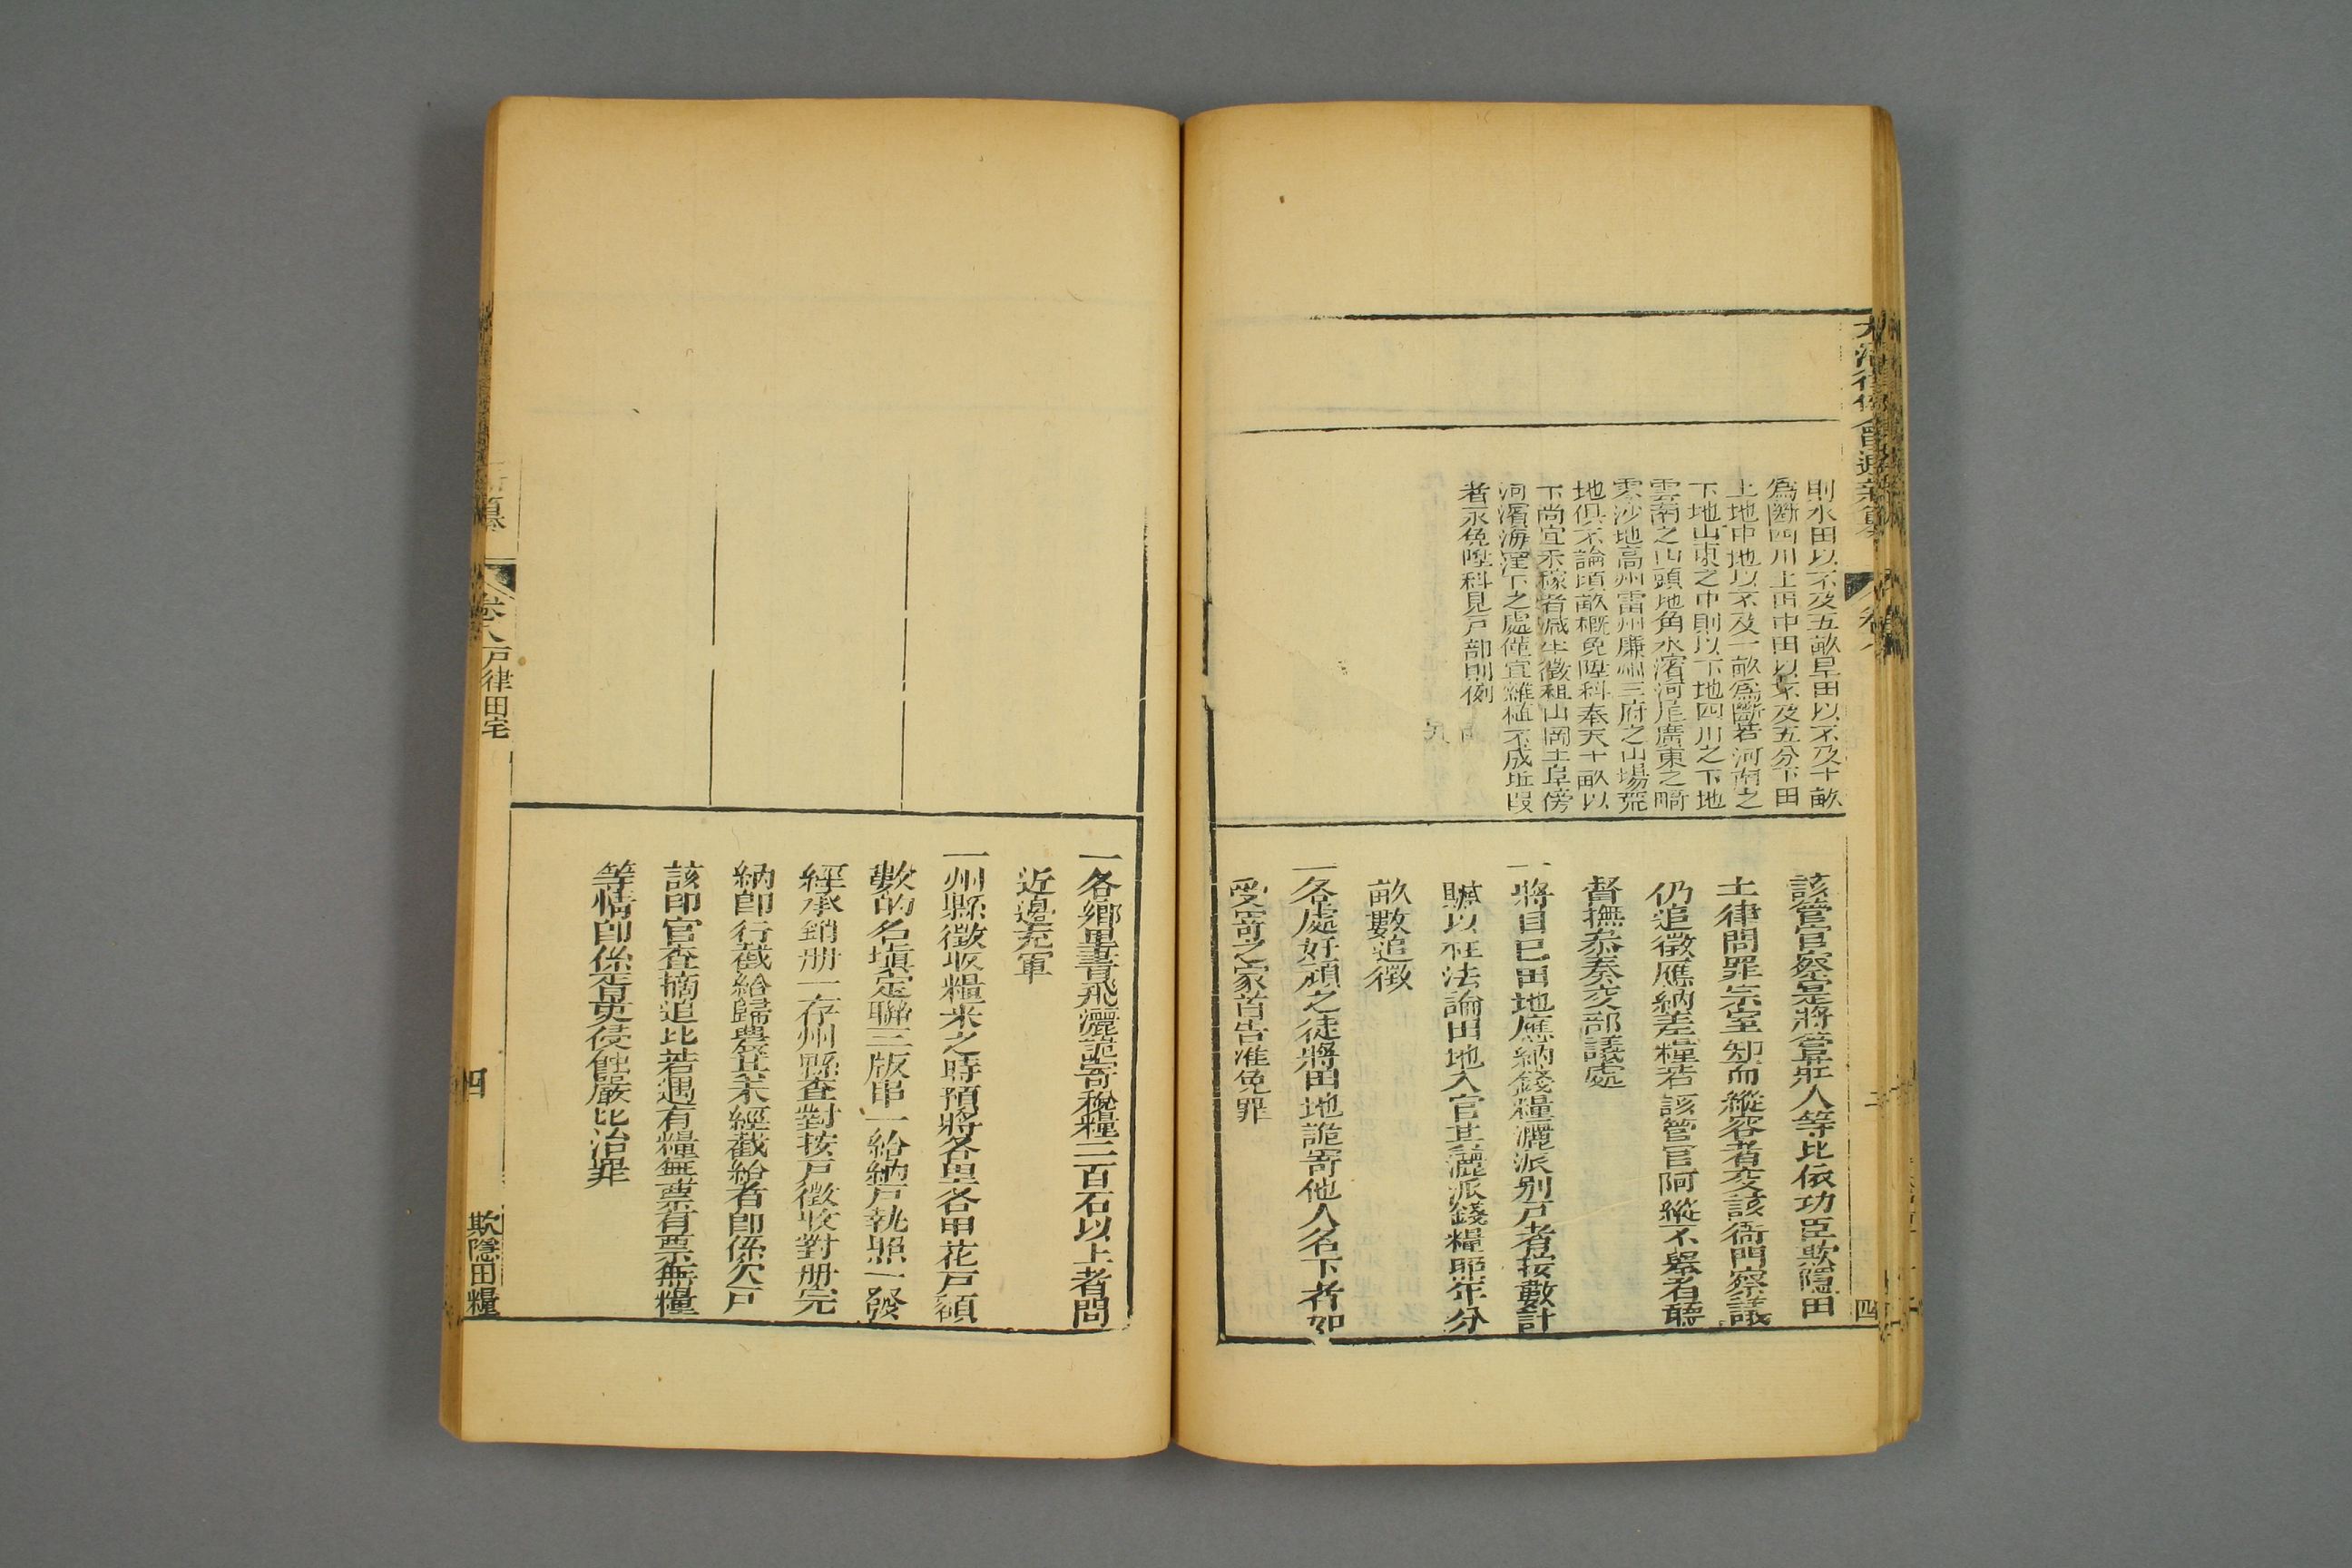 大清律例會通新纂
卷八
則水田以不及五畝旱田以不及十畝
爲斷四川上田中田以不及五分下田
上地中地以不及一畝爲斷若河南之
下地山東之中則以下地四川之下地
雲南之山頭地角水濱河尾廣東之畸
零沙地高州雷州廉州三府之山場荒
地俱不論頃畝概免陞科奉天十畝以
下尚宜禾稼者減半徵租山岡土阜傍
河濱海窪下之處僅宜雜植不成坵段
者永免陞科見戶部則例
該管官察實將管莊人等比依功臣欺隱田
土律問罪宗室知而縱容者交該衙門察議
仍追徵應納差糧若該管官阿縱不舉者聽
督撫叅奏交部議處
一將自己田地應納錢糧灑派别戶者按數計
贓以枉法論田地入官其灑派錢糧照年分
畝數追徵
一各處奸頑之徒將田地詭寄他人名下者如
受寄之家首告准免罪
一各鄉里書飛灑詭寄稅糧二百石以上者問
近邊充軍
一州縣徵收糧米之時預將各里各甲花戶額
數的名塡定聯三版串一給納戶執照一發
經承銷册一存州縣查對按戶徵收對册完
納即行截給歸農其未經截給者卽係欠戶
該印官查摘追比若遇有糧無票有票無糧
等情卽係胥吏侵蝕嚴比治罪
卷八
戶律田宅
四
欺隱田糧